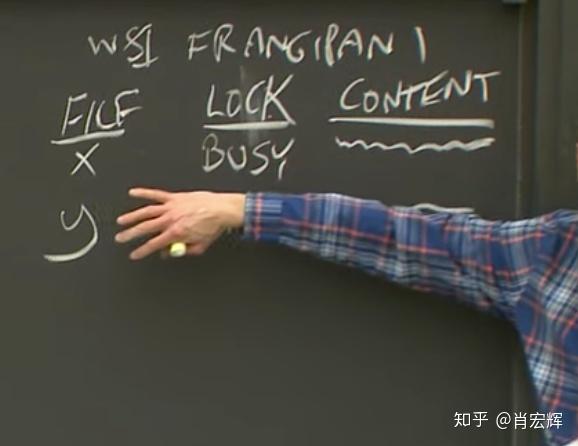 WS1 FRANGIPANI
FILE LOCK CONTENT
X BUSY
y
知乎 @肖宏辉